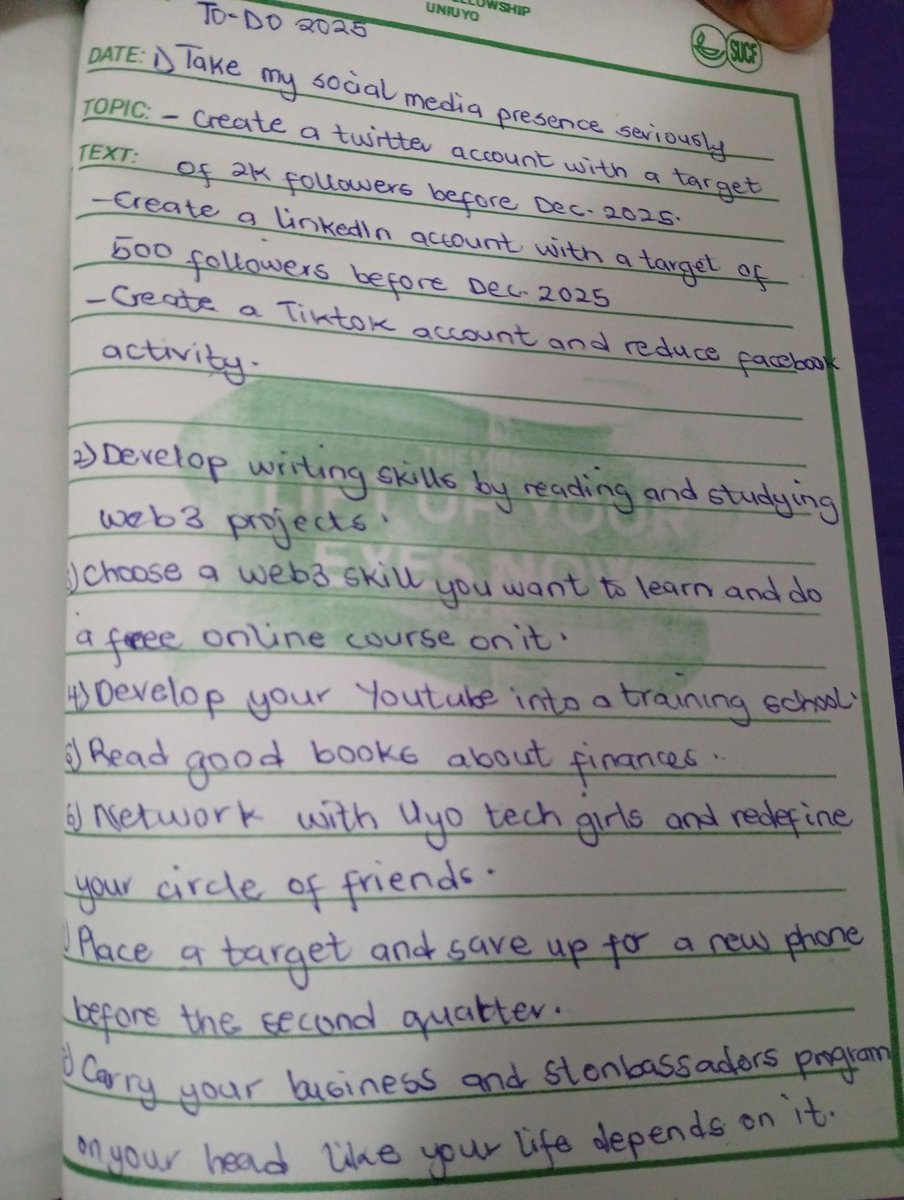 FELLOWSHIP
UNIUYO
SUCF
TO-DO 2025
DATE: 1) Take my social media presence seriously
TOPIC: - Create a twitter account with a target
TEXT: of 2K followers before Dec. 2025.
- Create a linkedIn account with a target of
500 followers before Dec. 2025
- Create a Tiktok account and reduce facebook
activity.
THEME:
LIFT UP YOUR
EYES NOW
2) Develop writing skills by reading and studying
web3 projects.
3) Choose a web3 skill you want to learn and do
a free online course on it.
4) Develop your Youtube into a training school.
5) Read good books about finances.
6) Network with Uyo tech girls and redefine
your circle of friends.
) Place a target and save up for a new phone
before the second quarter.
) Carry your business and stonbassadors program
on your head like your life depends on it.